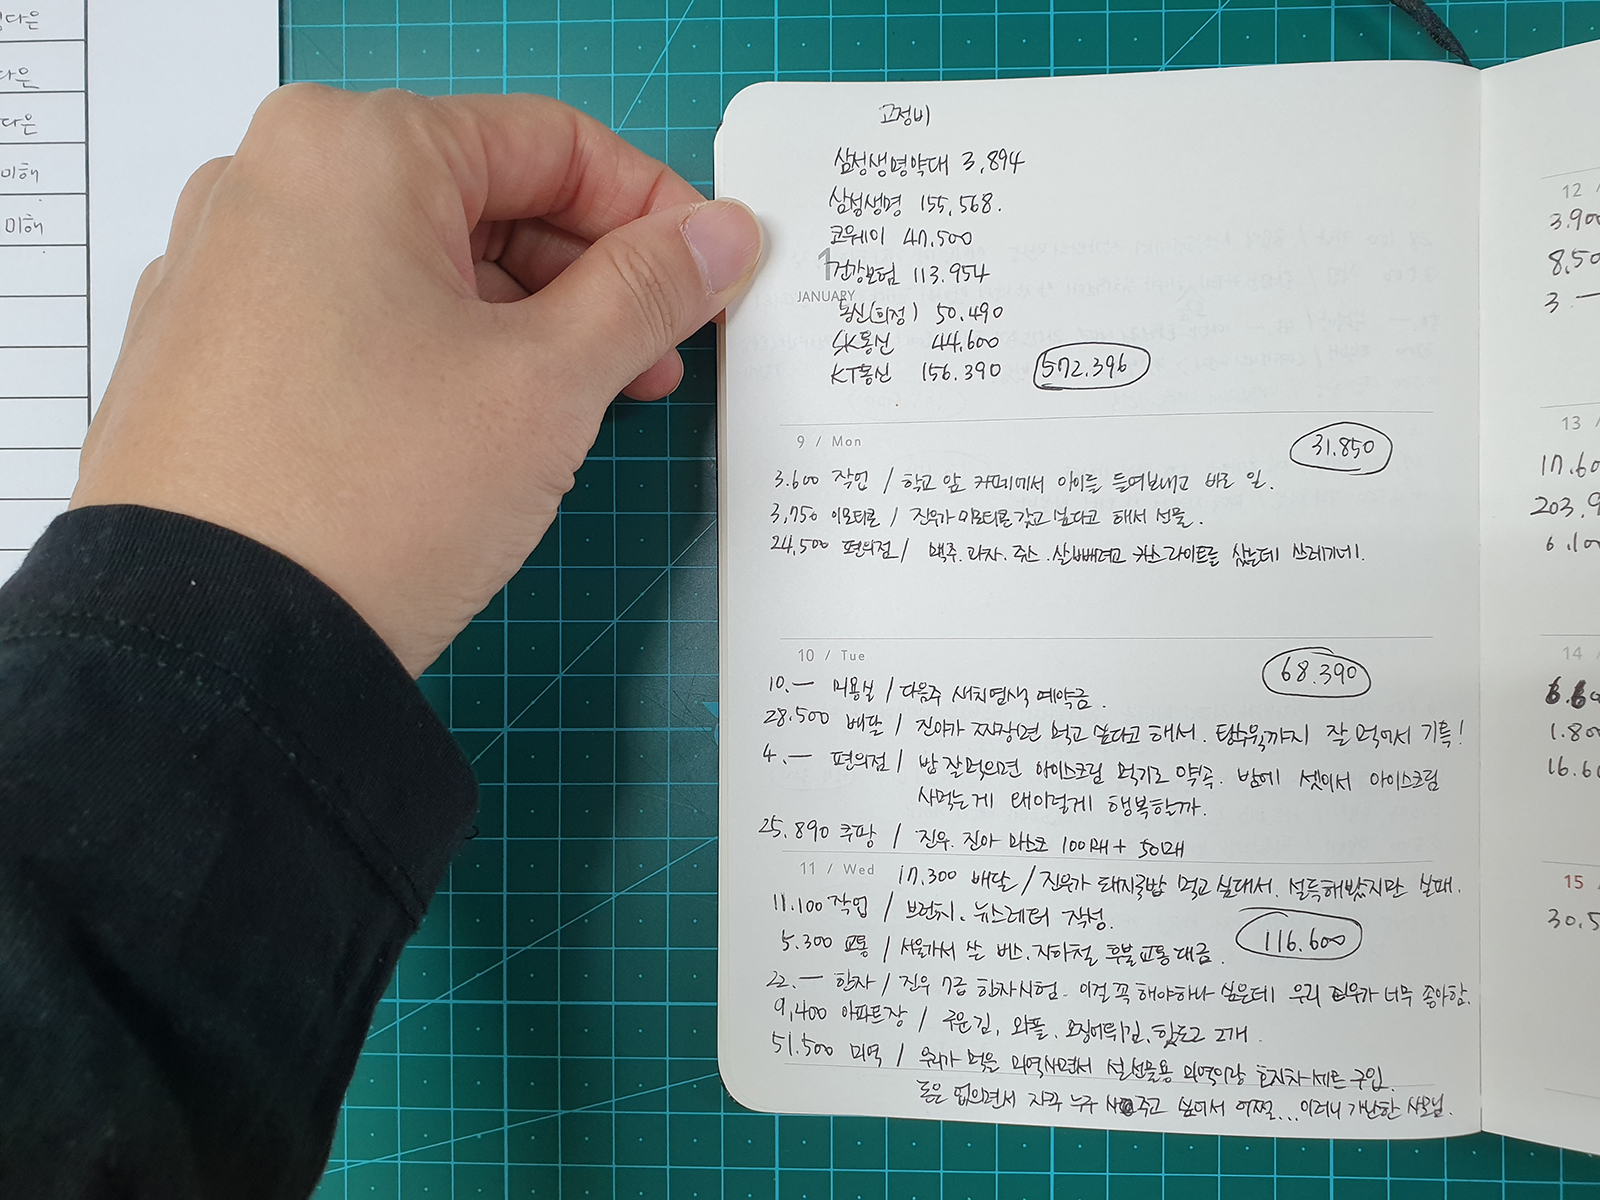 다은
다은
다은
미해
미해
고정비
삼성생명약대 3,894
삼성생명 155,568.
코웨이 47,500
1 건강보험 113.954
JANUARY
통신(희정) 50.490
SK통신 44,600
KT통신 156.390 572.396
9 / Mon 31.850
3.600 작업 / 학교 앞 카페에서 아이들 들여보내고 바로 일.
3,750 이모티콘 / 진우가 이모티콘 갖고 싶다고 해서 선물.
24,500 편의점 / 맥주. 과자. 쥬스. 살빼려고 카스 라이트를 샀는데 쓰레기네!
10 / Tue 68.390
10.— 미용실 / 다음주 새치염색 예약금.
28.500 배달 / 진아가 짜장면 먹고 싶다고 해서. 탕수육까지 잘 먹어서 기특!
4.— 편의점 / 밥 잘먹으면 아이스크림 먹기로 약속. 밤에 셋이서 아이스크림
사먹는게 왜이렇게 행복할까.
25.890 쿠팡 / 진우. 진아 마스크 100매 + 50매
11 / Wed 17,300 배달 / 진우가 돼지국밥 먹고 싶대서. 설득해봤지만 실패.
11.100 작업 / 브런치. 뉴스레터 작성.
5.300 교통 / 서울가서 쓴 버스. 지하철 후불교통대금. 116.600
22.— 한자 / 진우 7급 한자시험. 이걸 꼭 해야하나 싶은데 우리 진우가 너무 좋아함.
9,400 아파트장 / 구운김, 와플. 오징어튀김. 핫도그 2개.
51.500 미역 / 우리가 먹은 미역사면서 설선물용 미역이랑 호지차세트 구입.
돈은 없으면서 자꾸 누구 사주고 싶어서 어쩔... 이러니 가난한 사모님.
12 /
3.900
8,50
3.—
13
17.60
203.9
6.100
14
6.60
1.800
16.60
15
30.5